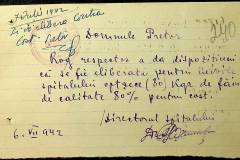 7 Iulie 1942
Domnule Pretor
Rog respectos a da dispozițiuni
că se fie eliberata pentru nevoile
spitalului optzece (80) Kgr. de făină
de calitate 80% pentru cost.
Directorul spitalului
6. VII 942
240